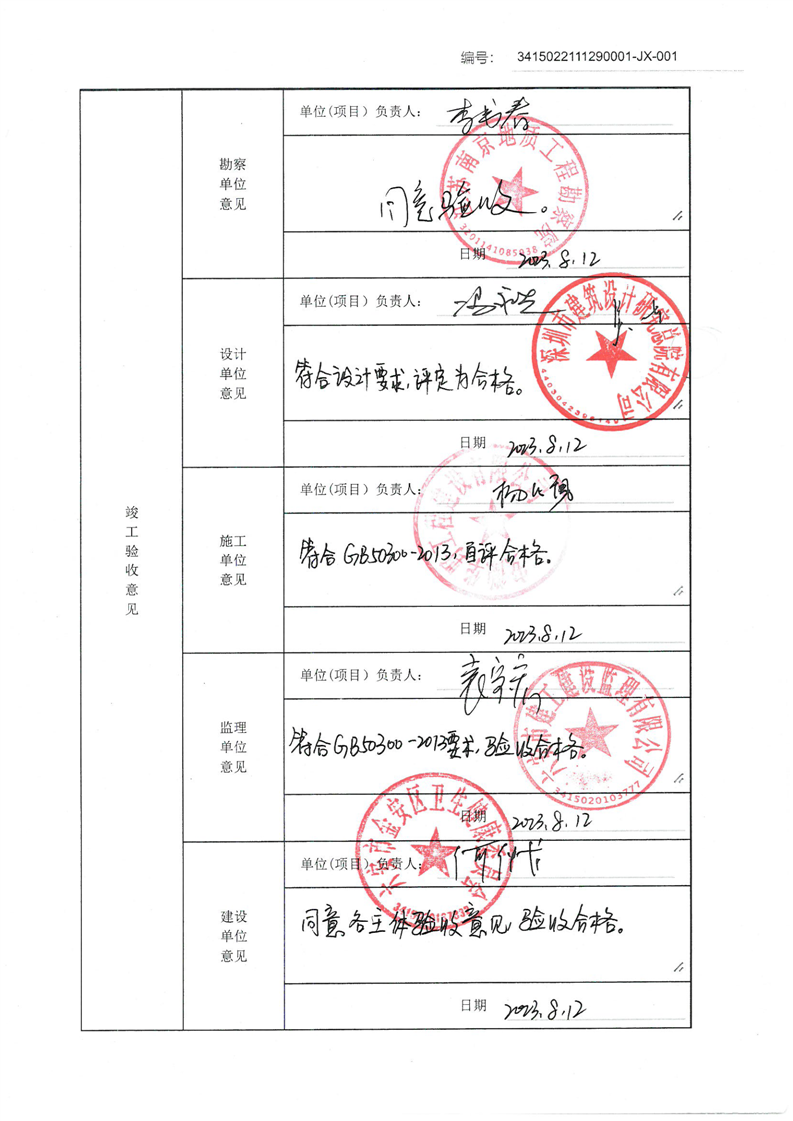 编号： 3415022111290001-JX-001
竣工验收意见
勘察单位意见
单位(项目）负责人：
南京地质工程勘察院
3201141085038
同意验收。
日期 2023.8.12
设计单位意见
单位(项目）负责人：
深圳市建筑设计研究总院有限公司
符合设计要求,评定为合格。
日期 2023.8.12
施工单位意见
单位(项目）负责人：
符合GB50300-2013,自评合格。
日期 2023.8.12
监理单位意见
单位(项目）负责人：
六安市建工建设监理有限公司
3415020103777
符合GB50300-2013要求,验收合格。
日期 2023.8.12
建设单位意见
单位(项目）负责人：
六安市金安区卫生健康委员会
同意各主体验收意见,验收合格。
日期 2023.8.12